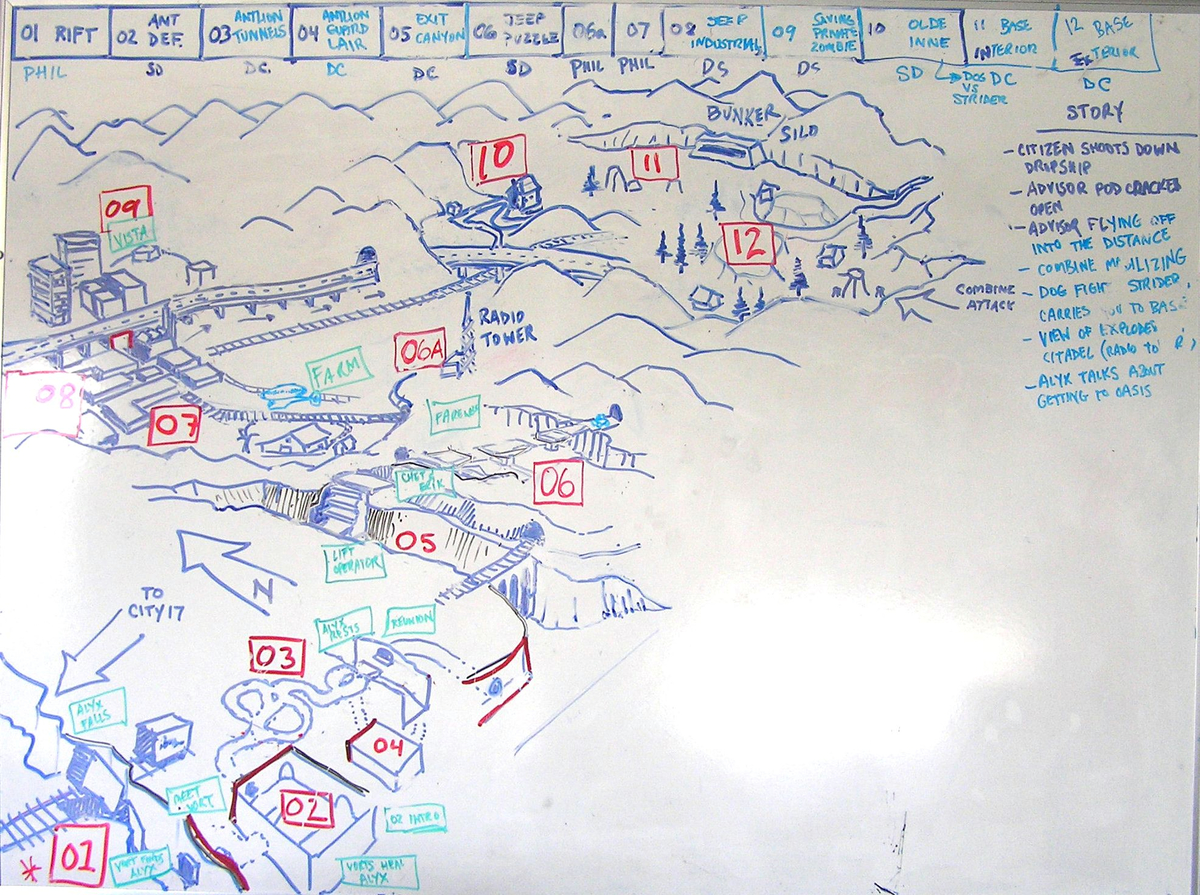 01 RIFT
02 ANT DEF.
03 ANTLION TUNNELS
04 ANTLION GUARD LAIR
05 EXIT CANYON
06 JEEP PUZZLE
06a
07
08 JEEP INDUSTRIAL
09 SAVING PRIVATE ZOMBIE
10 OLDE INNE
11 BASE INTERIOR
12 BASE EXTERIOR
PHIL
SD
DC
DC
DC
SD
PHIL
PHIL
DS
DS
SD
DOG DC
VS
STRIDER
DC
STORY
- CITIZEN SHOOTS DOWN
DROPSHIP
- ADVISOR POD CRACKED
OPEN
- ADVISOR FLYING OFF
INTO THE DISTANCE
- COMBINE
- DOG FIGHT STRIDER,
CARRIES YOU TO BASE
- VIEW OF EXPLODED
CITADEL (RADIO
- ALYX TALKS ABOUT
GETTING TO OASIS
BUNKER
SILO
10
11
09
VISTA
12
COMBINE
ATTACK
RADIO
TOWER
06A
FARM
08
07
06
CHET
ERIK
05
LIFT
OPERATOR
N
TO
CITY 17
ALYX
RESTS
REUNION
03
ALYX
FALLS
04
MEET
VORT.
02
02 INTRO
01
VORT FINDS
ALYX
VORTS HEAL
ALYX